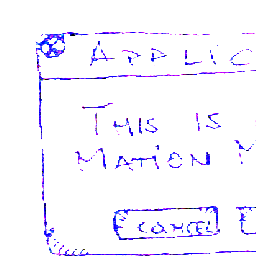 APPLIC
THIS IS
MATION M
CANCEL